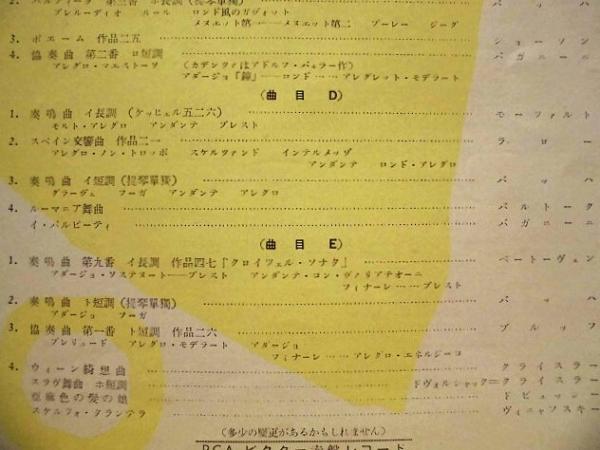 2. パルティータ 第三番 ホ長調 (提琴單獨) …… バッハ
プレルーディオ ルール ロンド風のガヴォット
メヌエット第一――メヌエット第二 ブーレー ジーグ
3. ポエーム 作品二五 …… ショーソン
4. 協奏曲 第二番 ロ短調 …… パガニーニ
アレグロ・マエストーソ (カデンツァはアドルフ・バッラー作)
アダージョ「鐘」――ロンド……アレグレット・モデラート
(曲目 D)
1. 奏鳴曲 イ長調 (ケッヒェル五二六) …… モーツァルト
モルト・アレグロ アンダンテ プレスト
2. スペイン交響曲 作品二一 …… ラロー
アレグロ・ノン・トロッポ スケルツァンド インテルメッゾ
アンダンテ ロンド・アレグロ
3. 奏鳴曲 イ短調 (提琴單獨) …… バッハ
グラーヴェ フーガ アンダンテ アレグロ
4. ルーマニア舞曲 …… バルトーク
イ・パルピーティ …… パガニーニ
(曲目 E)
1. 奏鳴曲 第九番 イ長調 作品四七「クロイツェル・ソナタ」 …… ベートーヴェン
アダージョ・ソステヌート――プレスト アンダンテ・コン・ヴァリアチオーニ
フィナーレ……プレスト
2. 奏鳴曲 ト短調 (提琴單獨) …… バッハ
アダージョ フーガ
3. 協奏曲 第一番 ト短調 作品二六 …… ブルッフ
プレリュード アレグロ・モデラート アダージョ
フィナーレ……アレグロ・エネルジーコ
4. ウィーン綺想曲 …… クライスラー
スラヴ舞曲 ホ短調 …… ドヴォルシャック=クライスラー
亞麻色の髪の娘 …… ドビュッシー
スケルツォ・タランテラ …… ヴィニャフスキー
(多少の變更があるかもしれません)
RCA ビクター赤盤レコード